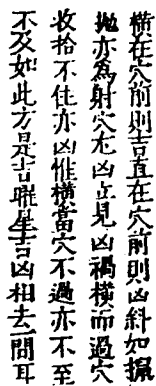 橫在穴前則吉直在穴前則凶斜如攛
拋亦爲射穴尤凶立見凶禍橫而過穴
收拾不住亦凶惟橫當穴不過亦不至
不及如此方是吉聮星吉凶相去一間耳